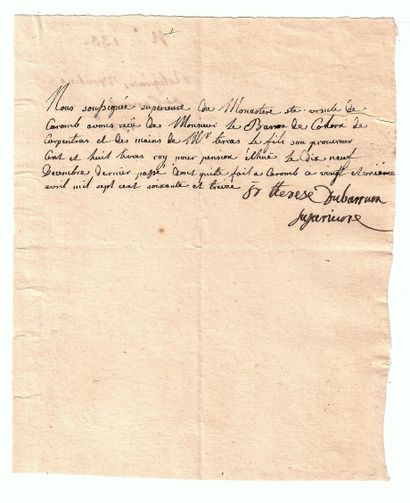 Nous soussignée superieure du Monastere ste ursule de
Caromb avons reçû de Monsieur le Baron de Cohorn de
Carpentras et des mains de Mr terras le fils son procureur
Cent et huit livres roy pour pension échüe le dix neuf
Decembre dernier passé Dont quitte fait a Caromb ce vingt et
avril mil sept cent soixante et treize
Sr therese Dubarrun
superieure